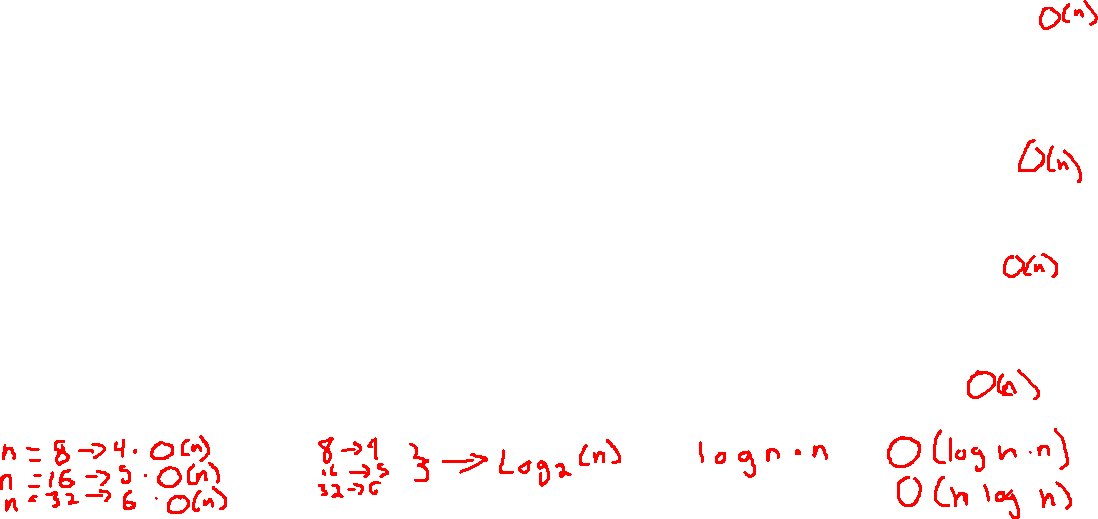 O(n)
O(n)
O(n)
O(n)
n = 8 → 4 · O(n)
n = 16 → 5 · O(n)
n = 32 → 6 · O(n)
8 → 4
16 → 5
32 → 6
} → Log₂(n)
log n · n
O(log n · n)
O(n log n)